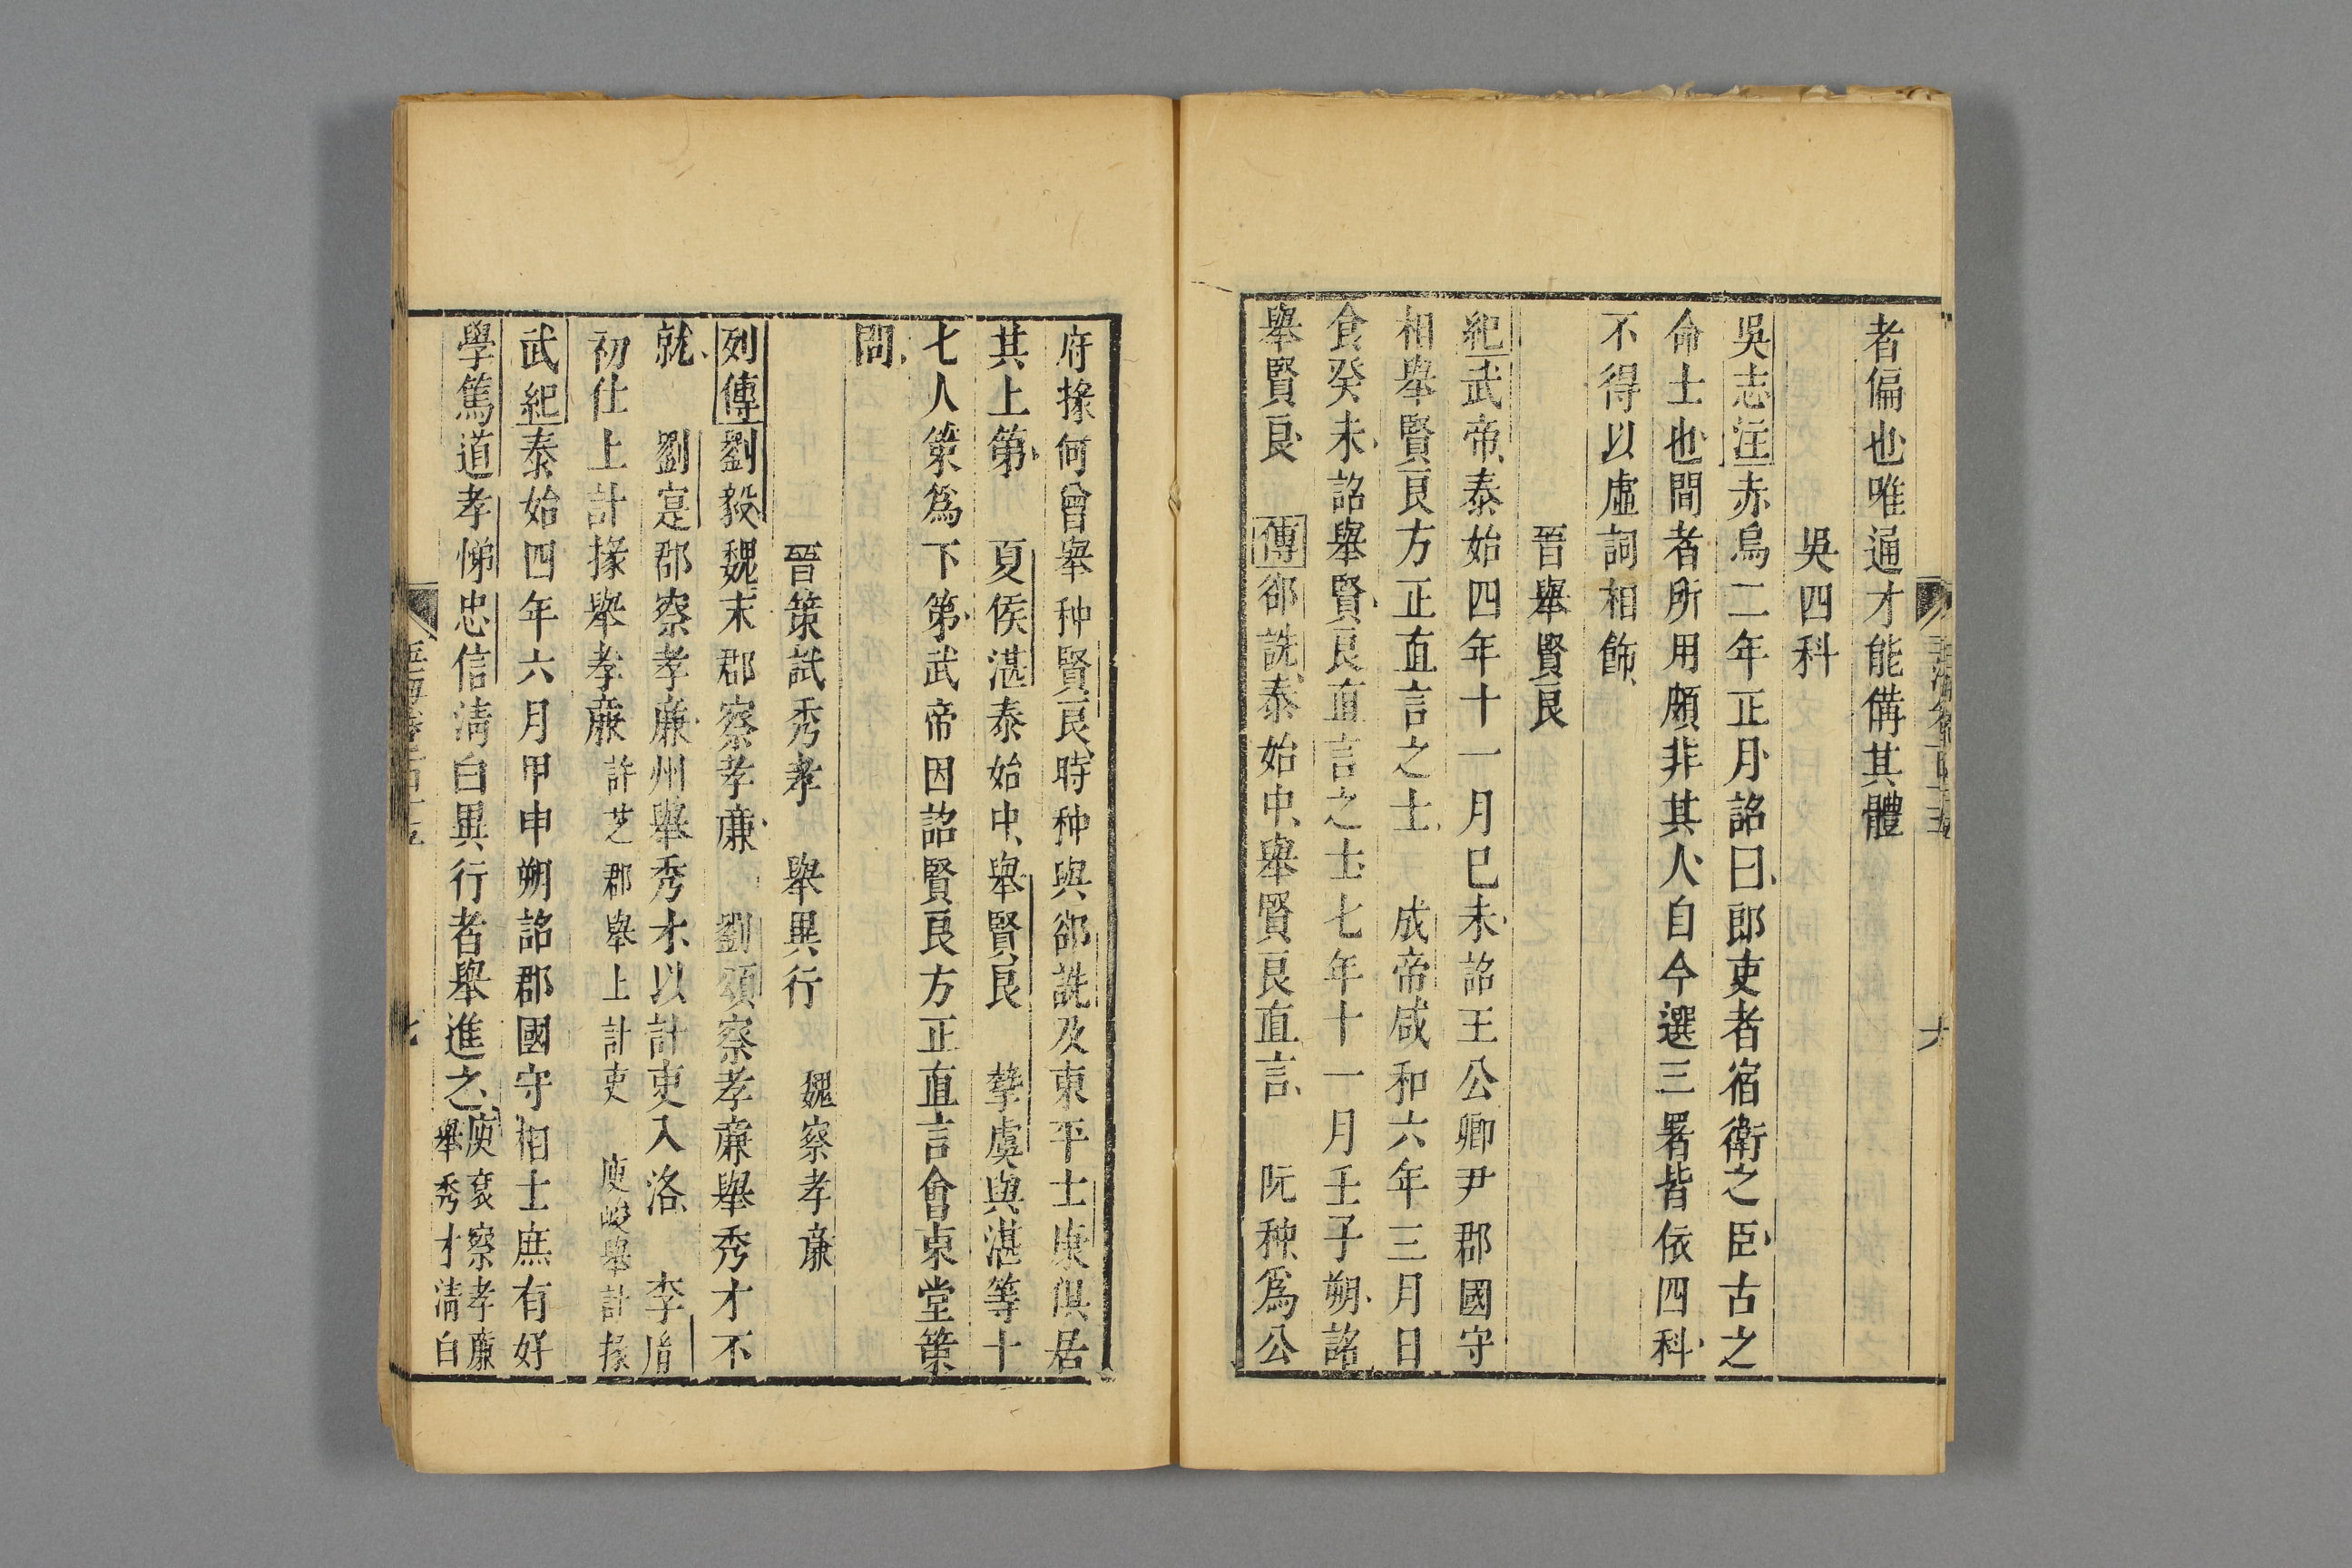 者偏也唯通才能備其體
吳四科
吳志注赤烏二年正月詔曰郎吏者宿衛之臣古之
命士也間者所用頗非其人自今選三署皆依四科
不得以虛詞相飾
晉舉賢良
紀武帝泰始四年十一月己未詔王公卿尹郡國守
相舉賢良方正直言之士　成帝咸和六年三月日
食癸未詔舉賢良直言之士七年十一月壬子朔詔
舉賢良　傳郤詵泰始中舉賢良直言　阮种爲公
府掾何曾舉种賢良時种與郤詵及東平士康俱居
其上第　夏侯湛泰始中舉賢良　摯虞與湛等十
七人策爲下第武帝因詔賢良方正直言會東堂策
問
晉策試秀孝　舉異行　魏察孝廉
列傳劉毅魏末郡察孝廉　劉頌察孝廉舉秀才不
就　劉寔郡察孝廉州舉秀才以計吏入洛　李
初仕上計掾舉孝廉　許芝郡舉上計吏　庾峻舉計掾
武紀泰始四年六月甲申朔詔郡國守相士庶有好
學篤道孝悌忠信清白異行者舉進之庾袞察孝廉
舉秀才清白